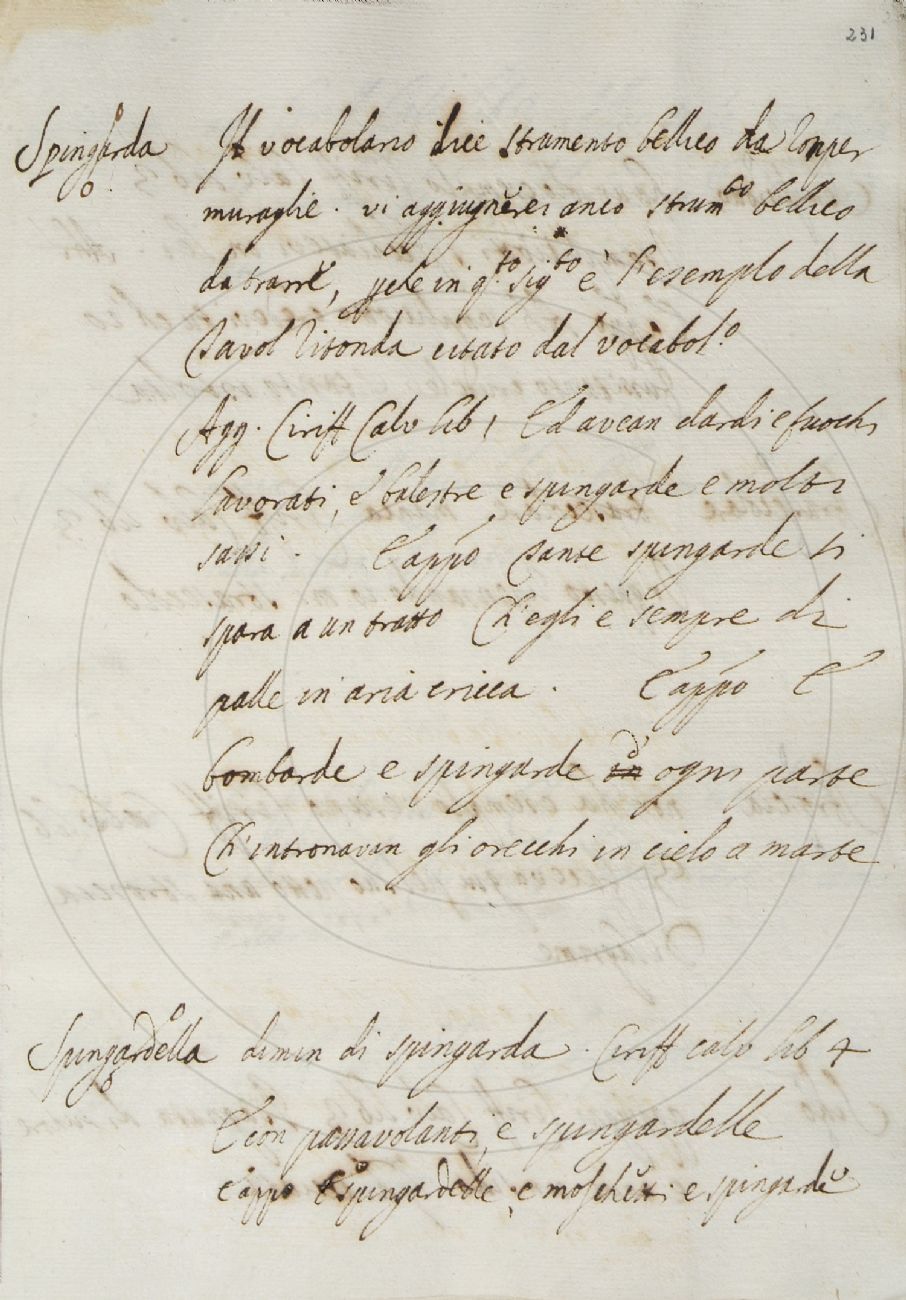 231
Spingarda Il vocabolario dice strumento bellico da romper
muraglie. vi aggiugnerei anco strum.to bellico
da trarre, che in q.to sig.to è l'esemplo della
Tavol Ritonda citato dal vocabol.o
Agg. Ciriff Calv lib 1 Ed avean dardi e fuochi
lavorati, e balestre e spingarde e molti
sassi. E appo tante spingarde si
spara a un tratto Ch'egli è sempre di
palle in aria ricca. E appo E
bombarde e spingarde d' ogni parte
Ch'intronavan gli orecchi in cielo a marte
Spingardella dimin di spingarda. Ciriff calv lib 4
E con passavolanti, e spingardelle
E appo E spingardelle, e moschetti e spingarde